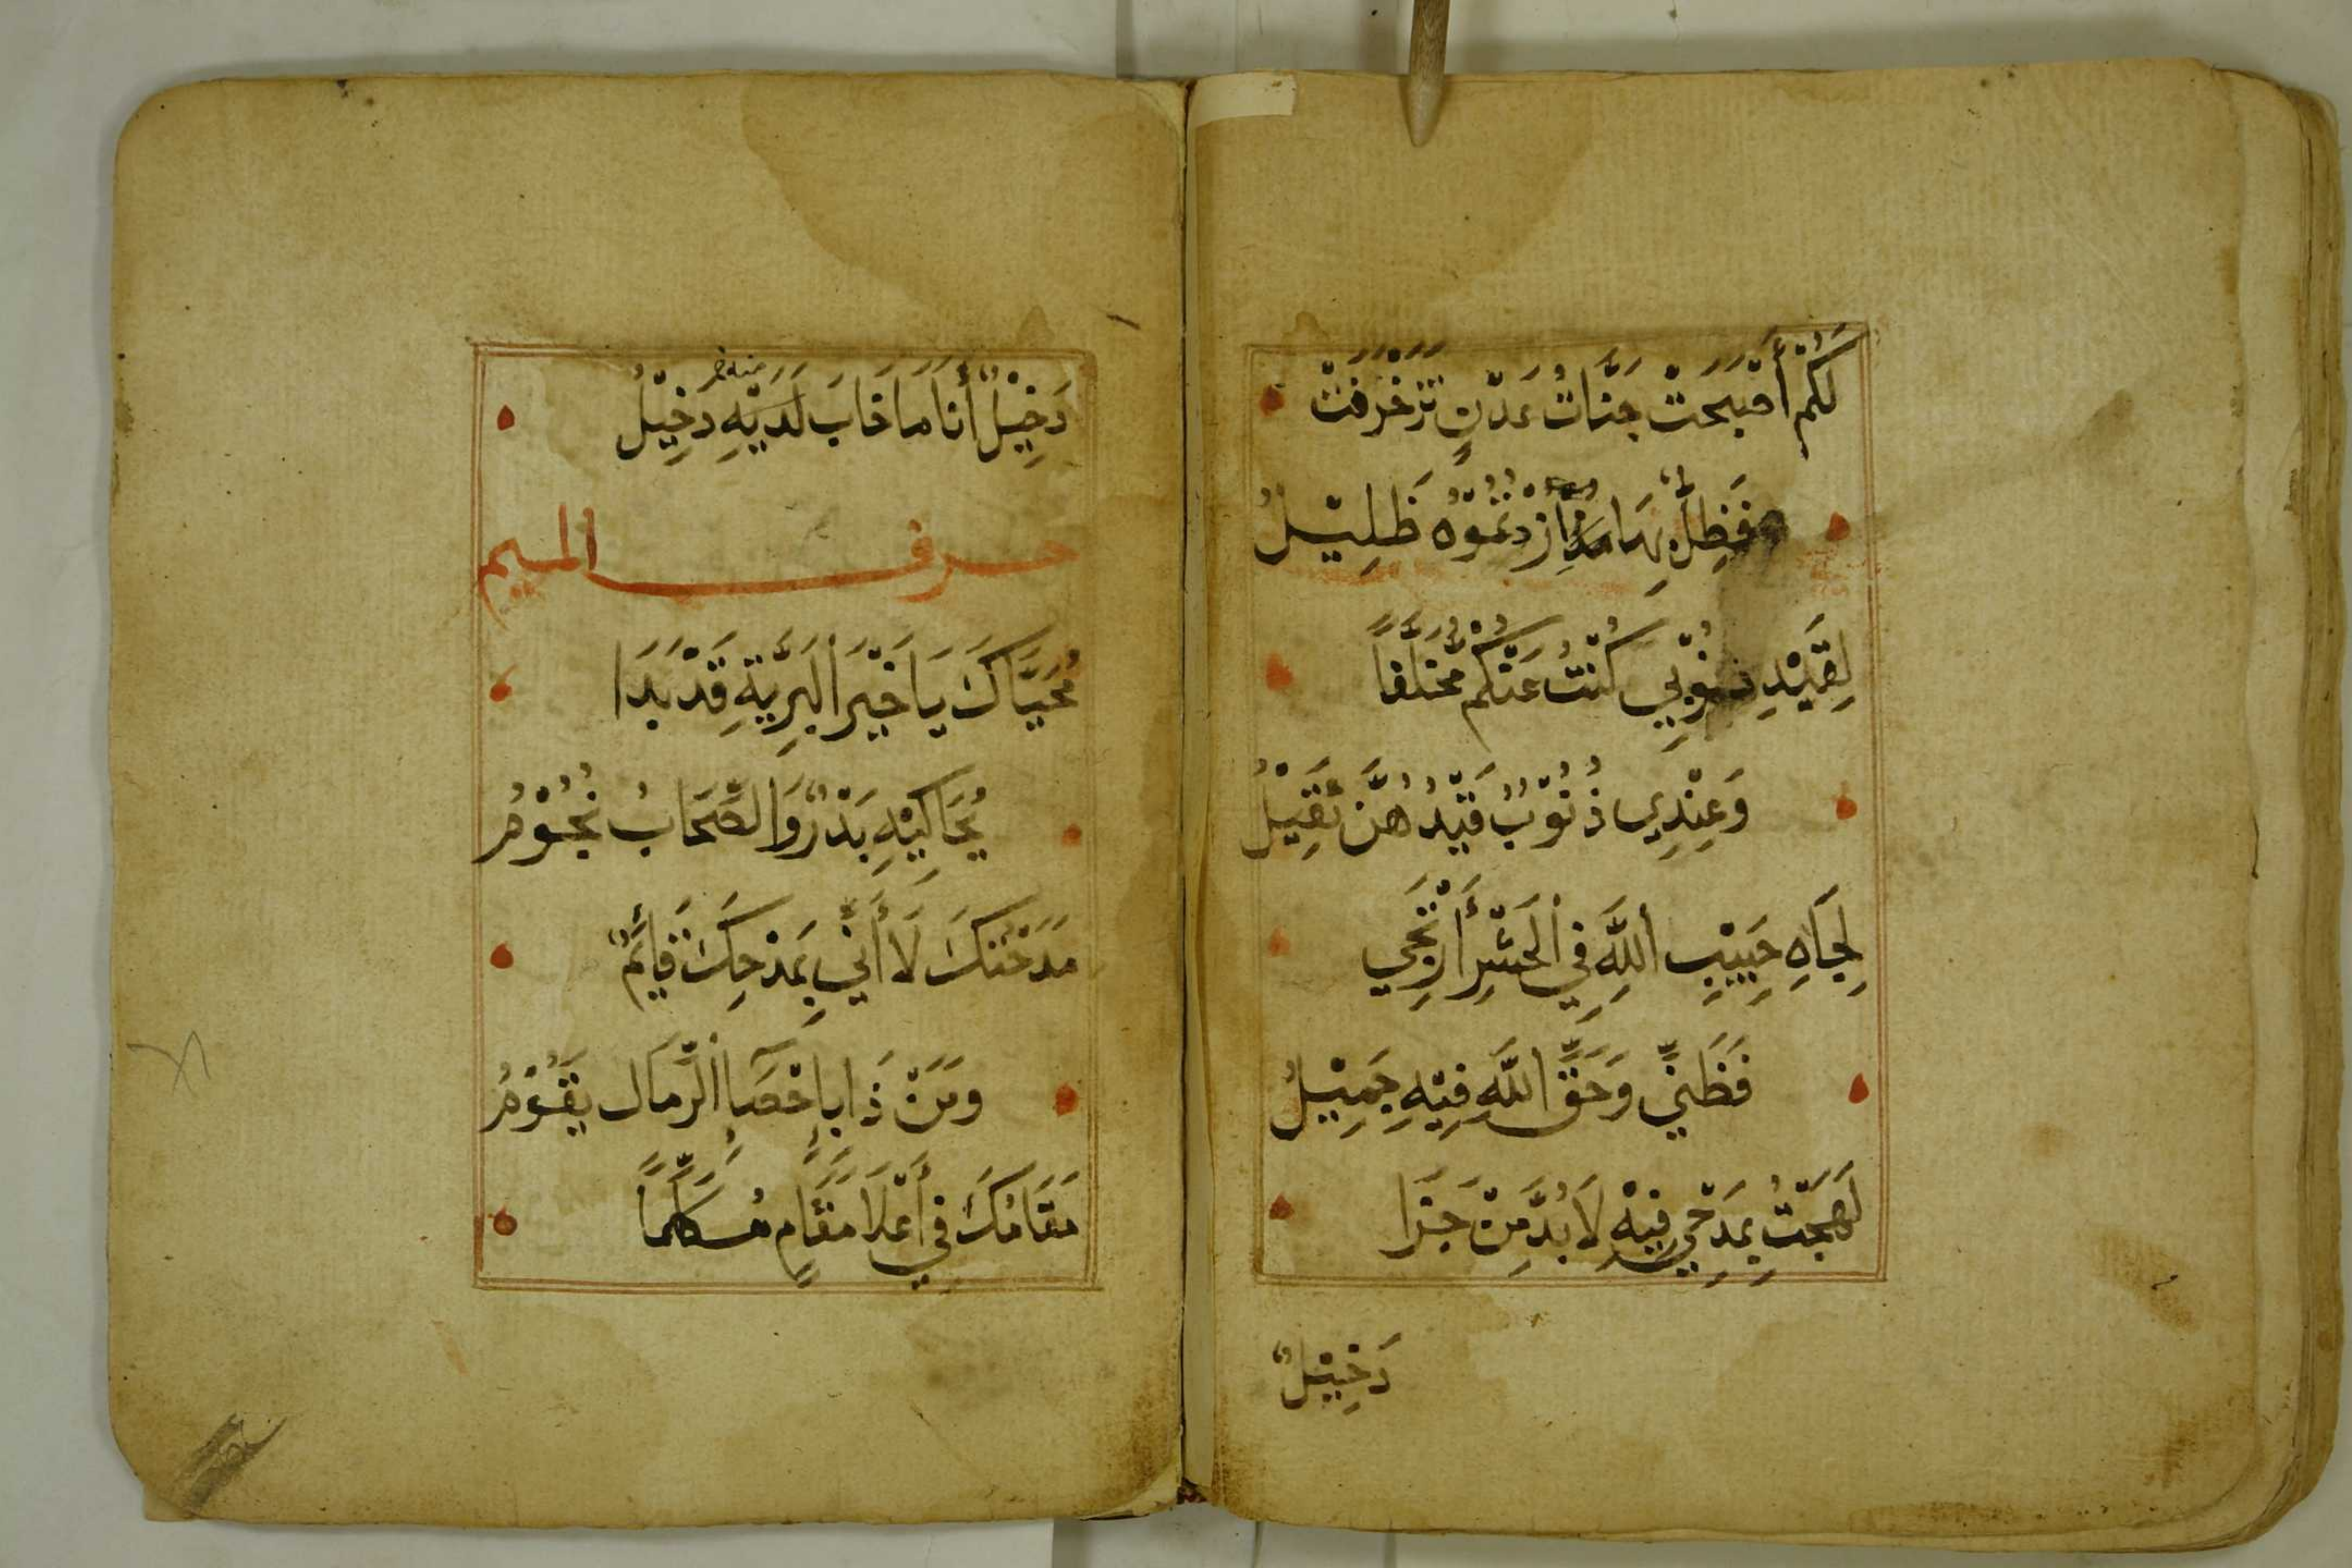 لَكُمْ أَصْبَحَتْ جَنَّاتُ عَدْنٍ تَزَخْرَفَتْ
فَظِلٌّ بِهَا مَا زِدْتُمُوْهُ ظَلِيْلُ
لِقَيْدِ ذُنُوْبِي كُنْتُ عَنْكُمْ مُخَلَّفاً
وَعِنْدِي ذُنُوْبٌ قَيْدُهُنَّ ثَقِيْلُ
لِجَاهِ حَبِيْبِ اللَّهِ فِي الْحَشْرِ أَرْتَجِي
فَظَنِّي وَحَقِّ اللَّهِ فِيْهِ جَمِيْلُ
لَهَجْتُ بِمَدْحِي فِيْهِ لَا بُدَّ مِنْ جَزَا
دَخِيْلٌ
دَخِيْلٌ أَنَا مَا خَابَ لَدَيْهِ دَخِيْلُ
منه
حرف الميم
مُحَيَّاكَ يَا خَيْرَ الْبَرِيَّةِ قَدْ بَدَا
يُحَاكِيْهِ بَدْرٌ وَالصِّحَابُ نُجُوْمُ
مَدَحْتُكَ لَا أَنِّي بِمَدْحِكَ قَائِمٌ
وَمَنْ ذَا بِإِحْصَاءِ الرِّمَالِ يَقُوْمُ
مَقَامُكَ فِي أَعْلَا مَقَامٍ مُكَلَّماً